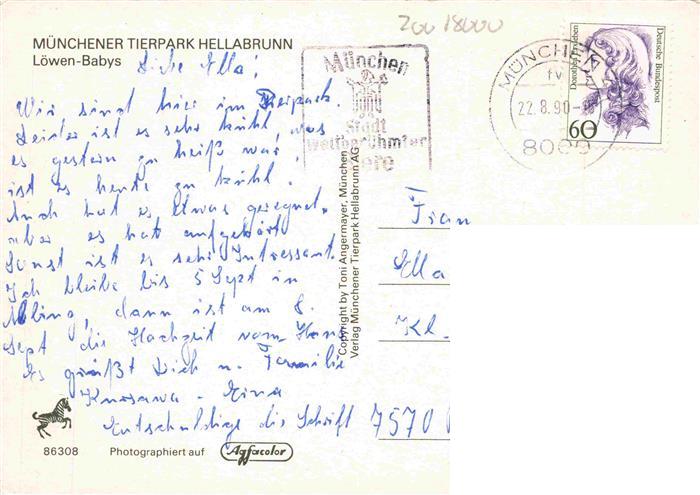 200 18000
MÜNCHENER TIERPARK HELLABRUNN
Löwen-Babys
Liebe Ella!
Wir sind hier im Tierpark.
Leider ist es sehr kühl, was
es gestern zu heiß war,
ist es heute zu kühl.
Auch hat es etwas geregnet.
aber es hat aufgehört
Sonst ist es sehr Intressant.
Ich bleibe bis 5 Sept in
dann ist am 8.
Sept die Hochzeit vom
Es grüßt Dich u. Familie
Entschuldige die Schrift
86308
Photographiert auf Agfacolor
Copyright by Toni Angermayer, München
Verlag Münchener Tierpark Hellabrunn AG
München
Stadt
weltberühmter
MÜNCHE
22.8.90
60
Deutsche Bundespost
Frau
Ella
Kl.
7570